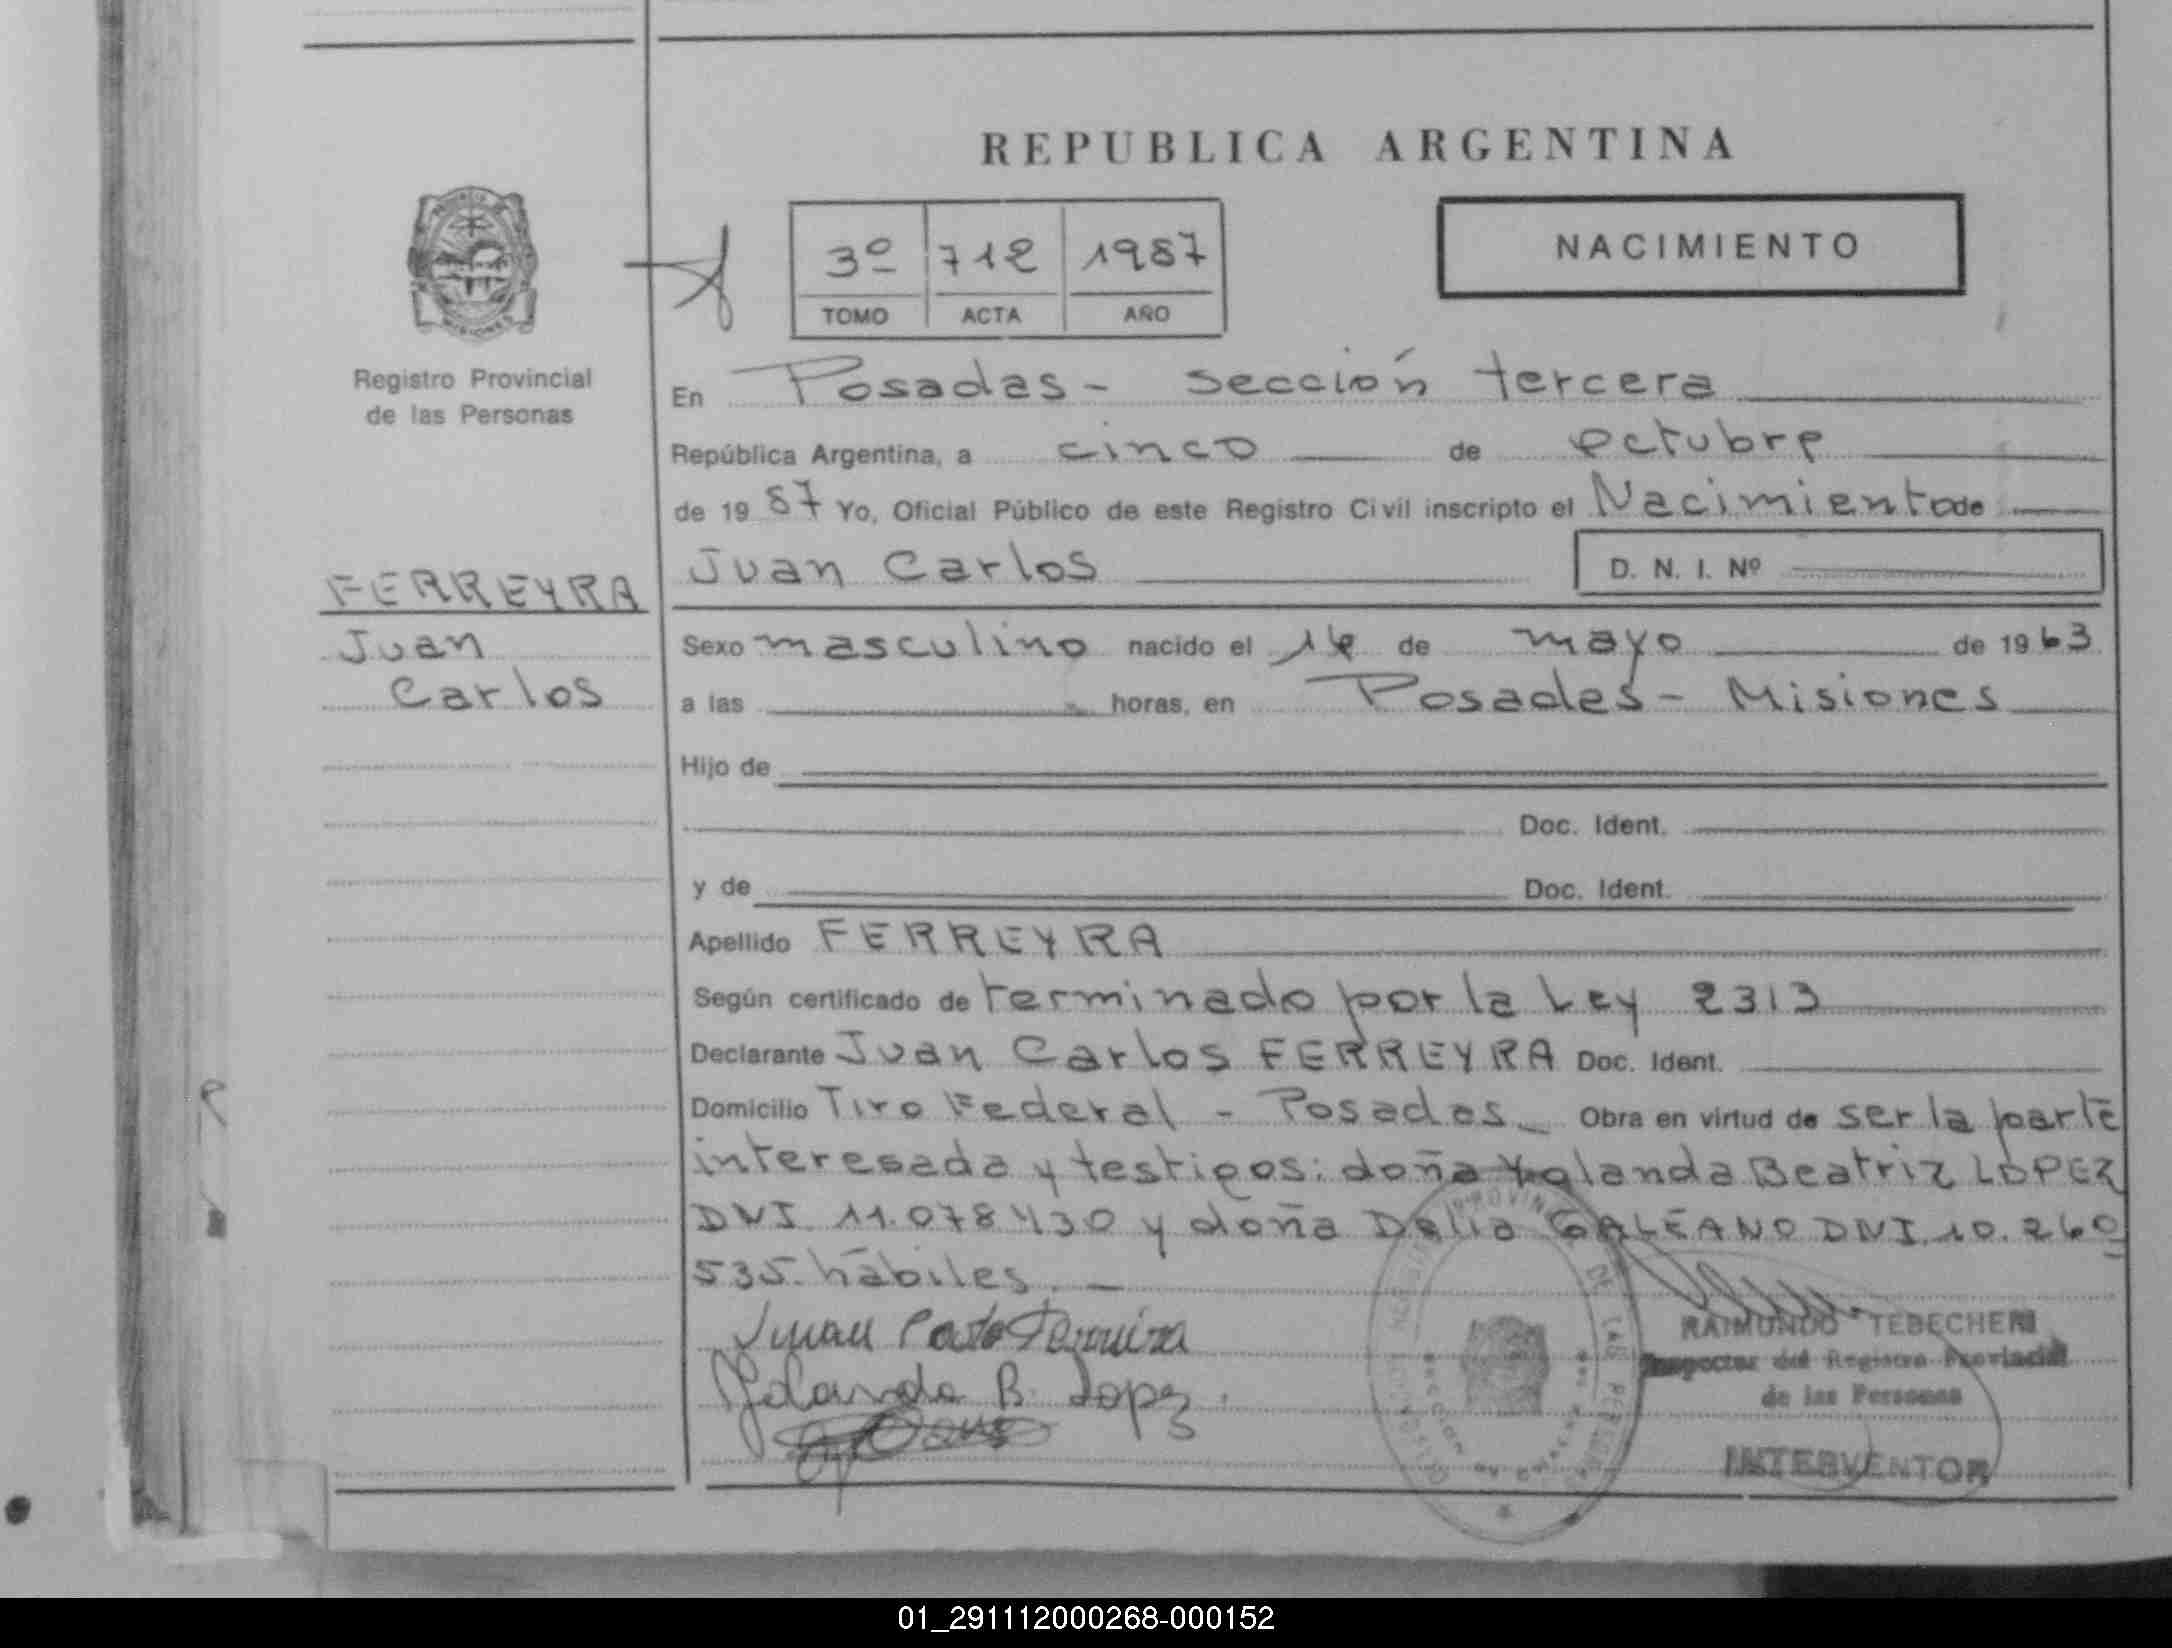 REPUBLICA ARGENTINA
NACIMIENTO
3º 712 1987
TOMO ACTA AÑO
Registro Provincial
de las Personas
FERREYRA
Juan
Carlos
En Posadas - Sección tercera
República Argentina, a cinco de octubre
de 1987 Yo, Oficial Público de este Registro Civil inscripto el Nacimiento de
Juan Carlos D. N. I. Nº
Sexo masculino nacido el de mayo de 1963
a las horas, en Posadas - Misiones
Hijo de
Doc. Ident.
y de Doc. Ident.
Apellido FERREYRA
Según certificado de terminado por la Ley 2313
Declarante Juan Carlos FERREYRA Doc. Ident.
Domicilio Tiro Federal - Posadas - Obra en virtud de ser la parte
interesada y testigos: doña Yolanda Beatriz LOPEZ
DNI 11.078430 y doña Delia GALEANO DNI 10.260
535. hábiles. -
Juan Ferreira
Yolanda B. Lopez.
RAIMUNDO TEBECHERI
Inspector del Registro Provincial
de las Personas
INTERVENTOR
01_291112000268-000152